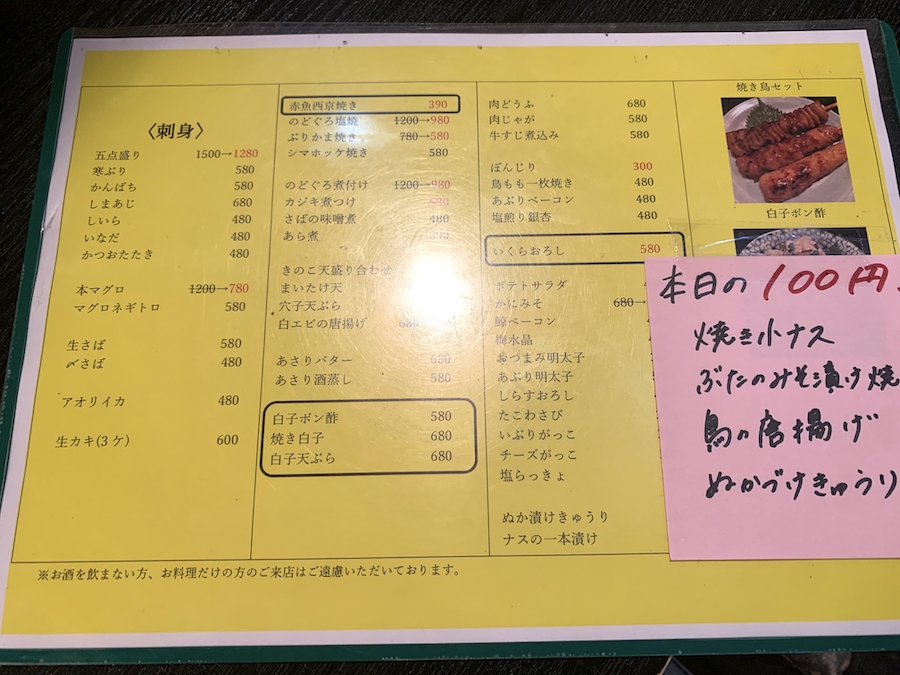 〈刺身〉
五点盛り 1500→1280
寒ぶり 580
かんぱち 580
しまあじ 680
しいら 480
いなだ 480
かつおたたき 480
本マグロ 1200→780
マグロネギトロ 580
生さば 580
〆さば 480
アオリイカ 480
生カキ(3ケ) 600
赤魚西京焼き 390
のどぐろ塩焼 1200→980
ぶりかま焼き 780→580
シマホッケ焼き 580
のどぐろ煮付け 1200→980
カジキ煮つけ
さばの味噌煮 480
あら煮
きのこ天盛り合わせ
まいたけ天
穴子天ぷら
白エビの唐揚げ
あさりバター 680
あさり酒蒸し 580
白子ポン酢 580
焼き白子 680
白子天ぷら 680
肉どうふ 680
肉じゃが 580
牛すじ煮込み 580
ぼんじり 300
鳥もも一枚焼き 480
あぶりベーコン 480
塩煎り銀杏 480
いくらおろし 580
ポテトサラダ
かにみそ 680→
鯨ベーコン
梅水晶
おつまみ明太子
あぶり明太子
しらすおろし
たこわさび
いぶりがっこ
チーズがっこ
塩らっきょ
ぬか漬けきゅうり
ナスの一本漬け
焼き鳥セット
白子ポン酢
本日の100円
焼き小ナス
ぶたのみそ漬け焼
鳥の唐揚げ
ぬかづけきゅうり
※お酒を飲まない方、お料理だけの方のご来店はご遠慮いただいております。